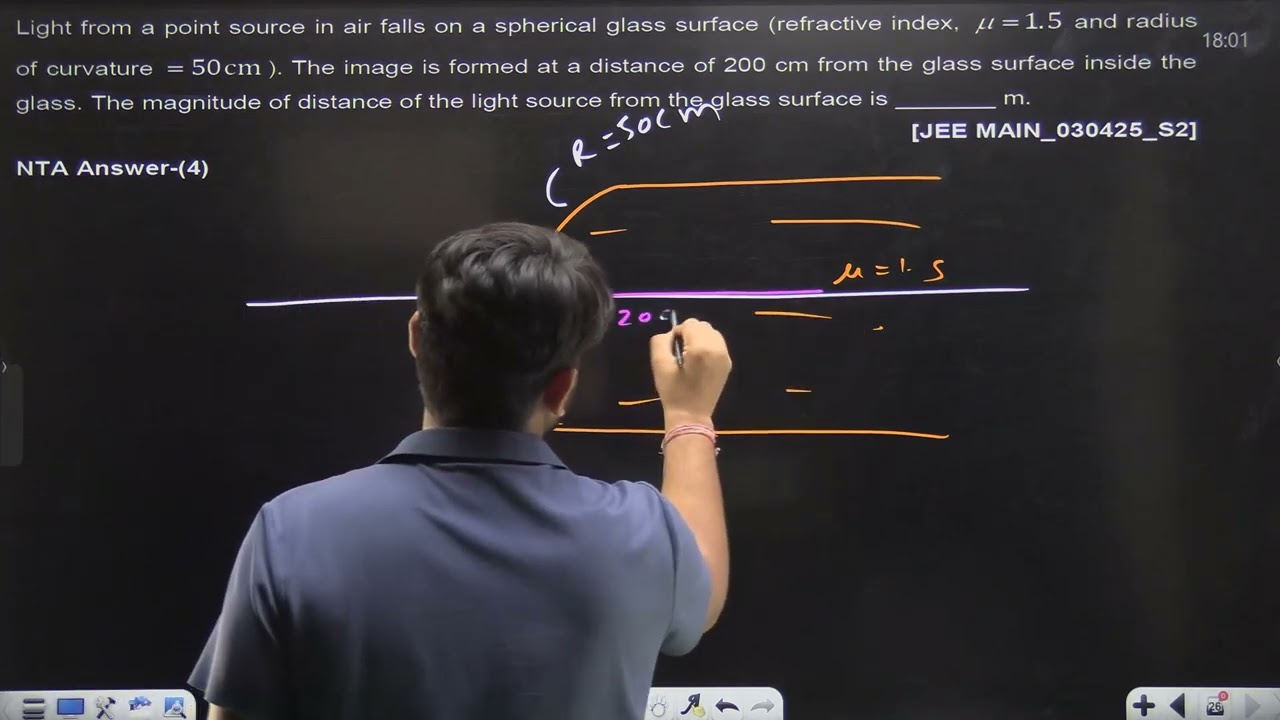 Light from a point source in air falls on a spherical glass surface (refractive index, μ = 1.5 and radius
18:01
of curvature = 50 cm ). The image is formed at a distance of 200 cm from the glass surface inside the
glass. The magnitude of distance of the light source from the glass surface is ________ m.
[JEE MAIN_030425_S2]
NTA Answer-(4)
R = 50cm
μ = 1.5
200
26